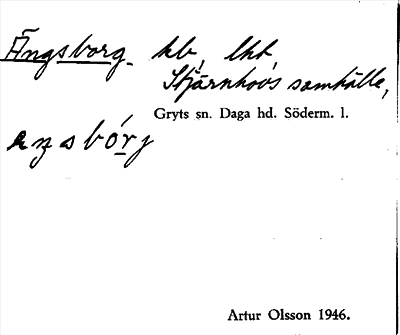 Ängsborg hb, lht
Stjärnhovs samhälle,
Gryts sn. Daga hd. Söderm. l.
ænsbórj
Artur Olsson 1946.